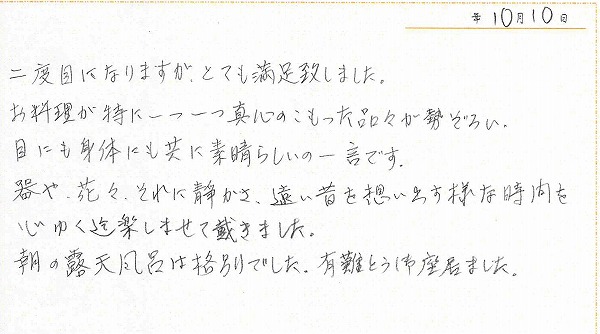 年10月10日
二度目になりますが、とても満足致しました。
お料理が特に一つ一つ真心のこもった品々が勢ぞろい、
目にも身体にも共に素晴らしいの一言です。
器や、花々、それに静かさ、遠い昔を想い出す様な時間を
心ゆく迄楽しませて戴きました。
朝の露天風呂は格別でした。有難とう御座居ました。